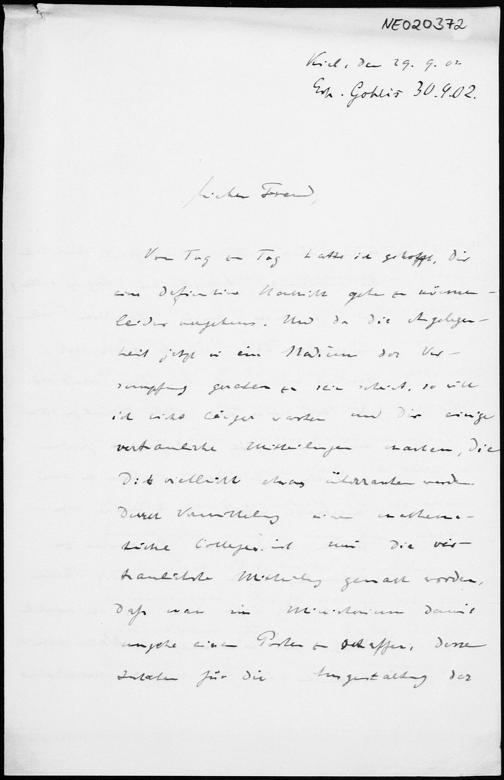 NE020372
Kiel, den 29. 9. 02
Erh. Gohlis 30.9.02.
Lieber Freund,
Von Tag zu Tag hatte ich gehofft, Dir
eine definitive Nachricht geben zu können –
leider vergebens. Und da die Angelegen-
heit jetzt in ein Stadium der Ver-
sumpfung geraten zu sein scheint, so will
ich nicht länger warten und Dir einige
vertrauliche Mitteilungen machen, die
Dich vielleicht etwas überraschen werden.
Durch Vermittelung eines mathema-
tischen Collegen ist mir die ver-
traulichste Mitteilung gemacht worden,
daß man im Ministerium damit
umgehe einen Posten zu schaffen, dessen
für die Ausgestaltung der